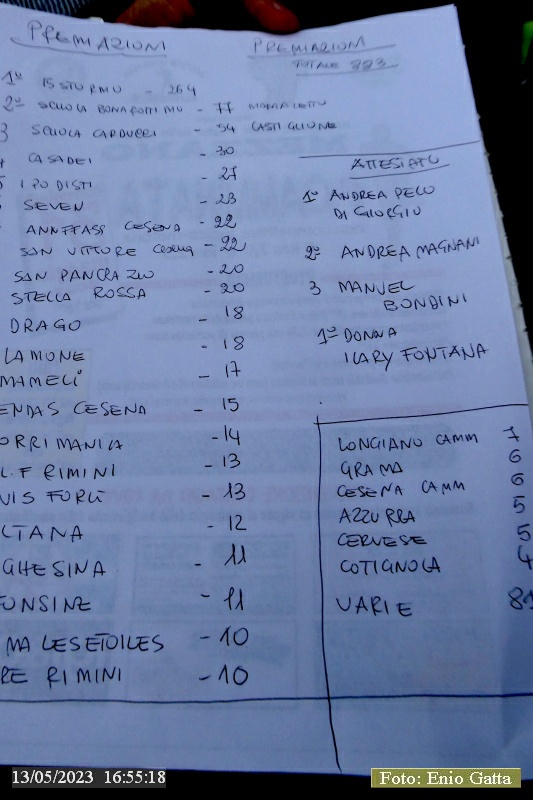 PREMIAZIONI
PREMIAZIONI
TOTALE 883
1º ISSTURMU - 264
2º SCUOLA BONAPORTI MU - 77
3 SCUOLA CARDUCCI - 54 CASTIGLIONE
CASADEI - 30
IPODISTI - 27
SEVEN - 23
ANNFFASS CESENA - 22
SAN VITTORE CESENA - 22
SAN PANCRAZIO - 20
STELLA ROSSA - 20
DRAGO - 18
LAMONE - 18
MAMELI - 17
ENDAS CESENA - 15
ORRIMANIA - 14
L.F RIMINI - 13
VIS FORLI - 13
LTANA - 12
GHESINA - 11
FONSINE - 11
MALESETOILES - 10
RE RIMINI - 10
ATTESTATO
1º ANDREA PELO
DI GIORGIO
2º ANDREA MAGNANI
3 MANUEL
BONDINI
1º DONNA
ILARY FONTANA
LONGIANO CAMM 7
GRAMA 6
CESENA CAMM 6
AZZURRA 5
CERVESE 5
COTIGNOLA 4
VARIE 81
13/05/2023 16:55:18
Foto: Enio Gatta